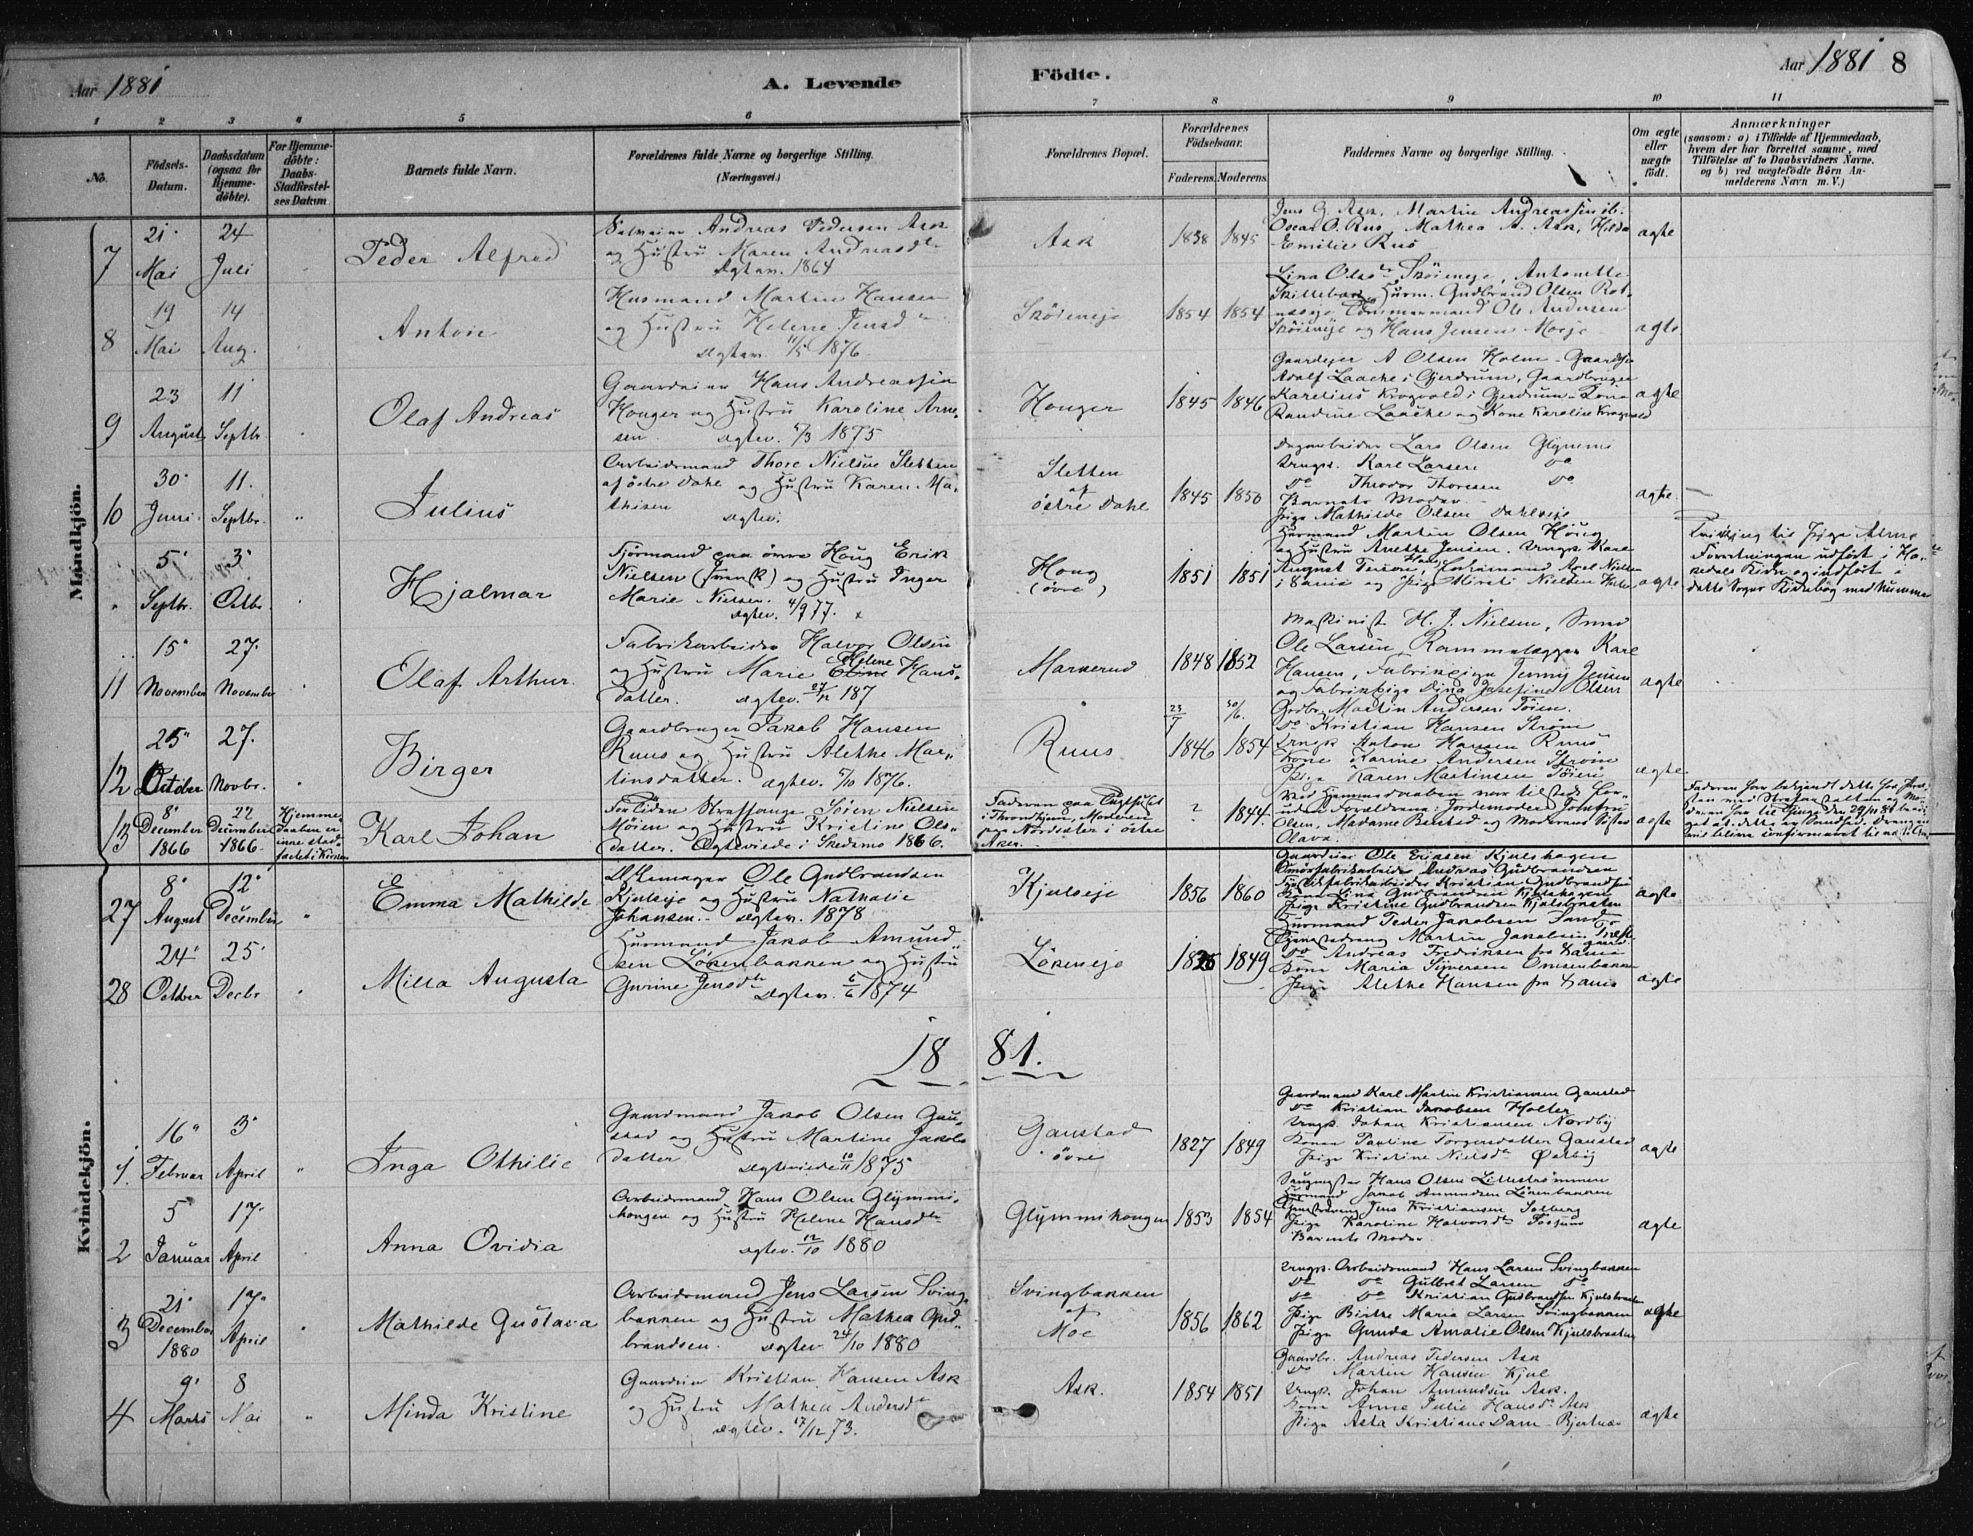 Aar 1881
A. Levende
Födte.
Aar 1881 8
1 2 3 4 5 6 7 8 9 10 11
No.
Födsels-
Datum.
Daabsdatum
(ogsaa for
Hjemme-
döbte).
For Hjemme-
döbte:
Daabs-
Stadfæstel-
ses Datum.
Barnets fulde Navn.
Forældrenes fulde Navne og borgerlige Stilling.
(Næringsvei.)
Forældrenes Bopæl.
Forældrenes
Födselsaar.
Faderens. Moderens.
Faddernes Navne og borgerlige Stilling.
Om ægte
eller
uægte
födt.
Anmærkninger
(saasom: a) i Tilfælde af Hjemmedaab,
hvem der har forrettet samme, med
Tilföielse af to Daabsvidners Navne.
og b) ved uægtefödte Börn An-
melderens Navn m. V.)
Mandkjön.
7
21 Mai
24 Juli
Peder Alfred
Andreas Pedersen Ask
og Hustru Maren Andreasd.
Ægtev. 1864
Ask
1838 1845
Jens G. Ask, Martin Andreassen ib.
Oscar O. Rus, Mathea A. Ask, Hilda
Emilie Rus
ægte
8
19 Mai
14 Aug.
Anton
Husmand Martin Hansen
og Hustru Helene Jensd.
Ægtev. 11/5 1876
Sköieneje
1854 1854
Lina Olsd. Sköieneje, Antonette
Husm. Gudbrand Olsen
Tömmermand Ole Andersen
Sköieneje og Hans Jensen Moeje
ægte
9
23 August
11 Septbr
Olaf Andreas
Gaardeier Hans Andreassen
Honger og Hustru Karoline Arne-
sen. Ægtev. 5/3 1875
Honger
1845 1846
Gaardejer A Olsen Holm - Gaardejer
Adolf Laache i Gjerdrum, Gaardbruger
Karelius Krogvold i Gjerdrum - Kone
Randine Laache og Kone Karoline Krogvold
ægte
10
30 Juni
11. Septbr.
Julius
Arbeidsmand Thore Nielsen Sletten
af östre Dahl og Hustru Karen Ma-
thisen
Ægtev.
Sletten
af
östre Dahl
1845 1850
Dagarbeider Lars Olsen Glymmi
Ungk. Karl Larsen do
do Theodor Thoresen do
Barnets Moder
Pige Mathilde Olsen Dahlseje
ægte
5 Septbr.
3 Octbr.
Hjalmar
paa övre Houg Erik
Nielsen (Svensk) og Hustru Inger
Marie Nielsen.
Ægtev. 4/9 77.
Houg
(övre)
1851 1851
Husmand Martin Olsen Houg
og Hustru Anethe Jensen. Ungk. Karl
August Axel Nielsen
i Sania og Pige Nielsen
ægte
Tvilling til Pige Alma
Forretningen udfört i Ha-
kedals Kirke og indfört i
dette Sogns Kirkebog med Nummer
11
15 November
27. November
Olaf Arthur.
Fabrikarbeider Halvor Olsen
og Hustru Marie Helene Hans-
datter. Ægtev. 27/12 187
Markerud
1848 1852
Maskinist H. J. Nielsen, Smed
Ole Larsen, Rammelægger Karl
Hansen, Fabrikpige Jenny Jensen
og Fabrikpige Dina Josefine Olsen
ægte
12
25 October
27. Novbr.
Birger
Gaardbruger Jakob Hansen
Ruus og Hustru Alethe Mar-
tinsdatter. Ægtev. 5/10 1876.
Ruus
23/7 1846 30/6. 1854
Grdbr. Martin Andersen Töien.
do Kristian Hansen Ström
Ungk Anton Hansen Ruus
Kone Karine Andersen Ström
Pige Karen Martinsen Töien
ægte
13
8 December 1866
22 December 1866.
Hjemme-
daaben er
ikke stad-
fæstet i Kirken
Karl Johan
For Tiden Straffange Sören Nielsen
Möien og Hustru Kristine Ols-
datter. Ægteviede i Skedsmo 1866.
Faderen paa Tugthuset
i Throndhjem, Moderen
paa Nordsæter i östre
Aker.
? 1844
Ved Hjemmedaaben var tilstede for-
uden Forældrene: Jordemoder
Olsen, Madame Berstad og Moderens Söster
Olava.
ægte
Kvindekjön.
27
8 August
12 December
Emma Mathilde
Ole Gudbrandsen
Kjulseje og Hustru Nathalie
Johansen. Ægtev. 1878
Kjulseje
1856 1860
Gaardeier Ole Eriksen Kjulshagen
Smörfabrikarbeider Andreas Gudbrandsen
Fyrstikfabrikarbeider Kristian Gudbrandsen
Kone Lina Gudbrandsen Kjulshagen
Pige Kristine Gudbrandsen Kjulsbraaten
ægte
28
24 October
25 Decbr
Milla Augusta
Husmand Jakob Amund-
sen Lökenbakken og Hustru
Gurine Jensd. Ægtev. 5/6 1874
Lökeneje
1825 1849
Husmand Peder Jakobsen Sand
Tjenestedreng Martin Jakobsen
do Andreas Fredriksen fra Sania
Kone Maria Syversen
Pige Alethe Hansen fra Sania
ægte
18 81.
1.
16 Februar
3 April
Inga Othilie
Gaardmand Jakob Olsen Gau-
stad og Hustru Martine Jakobs-
datter Ægteviede 10/11 1875
Gaustad
övre
1827 1849
Gaardmand Karl Martin Kristiansen Gaustad
do Kristian Jakobsen Holter
Ungk. Johan Kristiansen Nordby
Konen Pauline Torgersdatter Gaustad
Pige Kristine Nielsd. Österby
ægte
2
5 Januar
17 April
Anna Ovidia
Arbeidsmand Hans Olsen Glymmi-
haugen og Hustru Helene Hansd.
Ægtev. 12/10 1880
Glymmihaugen
1853 1854
Hans Olsen Lillestrømmen
Husmand Jakob Amundsen Lökenbakken
Tjenestedreng Jens Kristiansen Solberg
Pige Karoline Halvorsd. Fossum
Barnets Moder.
ægte
3
21 December 1880
17 April
Mathilde Gustava
Arbeidsmand Jens Larsen Sving-
bakken og Hustru Mathea Gud-
brandsen. Ægtev. 24/10 1880
Svingbakken
af
Moe
1856 1862
Ungk. Arbeidsmand Hans Larsen Svingbakken
do do Gulbret Larsen do
do do Kristian Gudbrandsen Kjulsbraaten
Pige Birthe Maria Larsen Svingbakken
Pige Gunda Amalie Olsen Kjulsbraaten
ægte
4
9 Marts
8 Mai
Minda Kristine
Gaardeier Kristian Hansen Ask
og Hustru Mathea Andersd.
Ægtev. 17/12 73.
Ask.
1854 1851
Gaardbr. Andreas Pedersen Ask
do Martin Hansen Kjul
Ungk. Johan Amundsen Ask.
Kone Anne Julie Hansd. Ask
Pige Asta Kristiane Dam - Bjertnæs
ægte